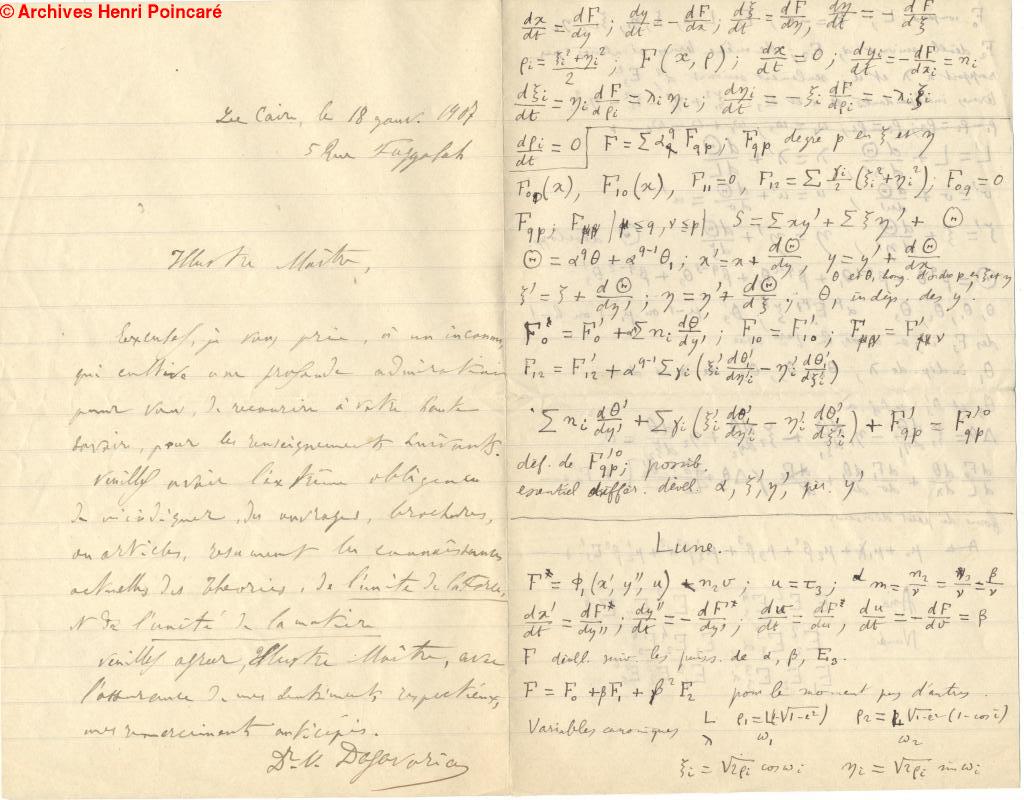 © Archives Henri Poincaré
Le Caire, le 18 janv. 1907
5 Rue
Illustre Maître,
Excusez, je vous prie, à un inconnu,
qui cultive une profonde admiration
pour vous, de recourir à votre haute
savoir, pour les renseignements suivants.
Veuillez avoir l'extrême obligeance
de m'indiquer, des ouvrages, brochures,
ou articles, resumant les connaissances
actuelles des theories, de l'unité de la Force,
et de l'unité de la matière
Veuillez agreer, Illustre Maître, avec
l'assurance de mes sentiments respectueux,
mes remerciments anticipés.
Dr. V.
dx/dt = dF/dy ; dy/dt = -dF/dx ; dξ/dt = dF/dη, dη/dt = -dF/dξ
ρi = (ξi²+ηi²)/2 ; F(x, ρ) ; dx/dt = 0 ; dyi/dt = -dF/dxi = ni
dξi/dt = ηi dF/dρi = λi ηi ; dηi/dt = -ξi dF/dρi = -λi ξi
dρi/dt = 0 F = Σ α^q Fqp ; Fqp degré p en ξ et η
F00(x), F10(x), F11=0 F12 = Σ γi/2 (ξi²+ηi²) ; F0q = 0
Fqp ; Fμν | μ≤q, ν≤p | S = Σxy' + Σξη' + Θ
Θ = α^q θ + α^(q-1) θ1 ; x' = x + dΘ/dy' y = y' + dΘ/dx
θ et θ1 hom. d'ordre p en ξ et η
ξ' = ξ + dΘ/dη' ; η = η' + dΘ/dξ ; θ1 indép des y'.
F0* = F0' + Σ ni dθ'/dy' ; F10 = F10' ; Fμν = F'μν
F12 = F12' + α^(q-1) Σ γi (ξi' dθ1'/dηi' - ηi' dθ1'/dξi')
Σ ni dθ'/dy' + Σ γi (ξi' dθ1'/dηi' - ηi' dθ1'/dξi') + F'qp = F'qp^0
déf. de F'qp^0 ; possib.
essentiel différ. dével. α, ξ', η', pér. y'
Lune.
F* = Φ1(x', y'', u) + n2 v ; u = τ3 ; α m = n2/ν = β/ν
dx'/dt = dF*/dy'' ; dy''/dt = -dF*/dx' ; dv/dt = dF*/du, du/dt = -dF/dv = β
F dévl. suiv. les puiss. de α, β, E3.
F = F0 + βF1 + β²F2 pour le moment pas d'autres.
Variables canoniques L ρ1 = L(1-√1-e²) ρ2 = L√1-e² (1-cos i)
λ ω1 ω2
ξi = √2ρi cos ωi ηi = √2ρi sin ωi